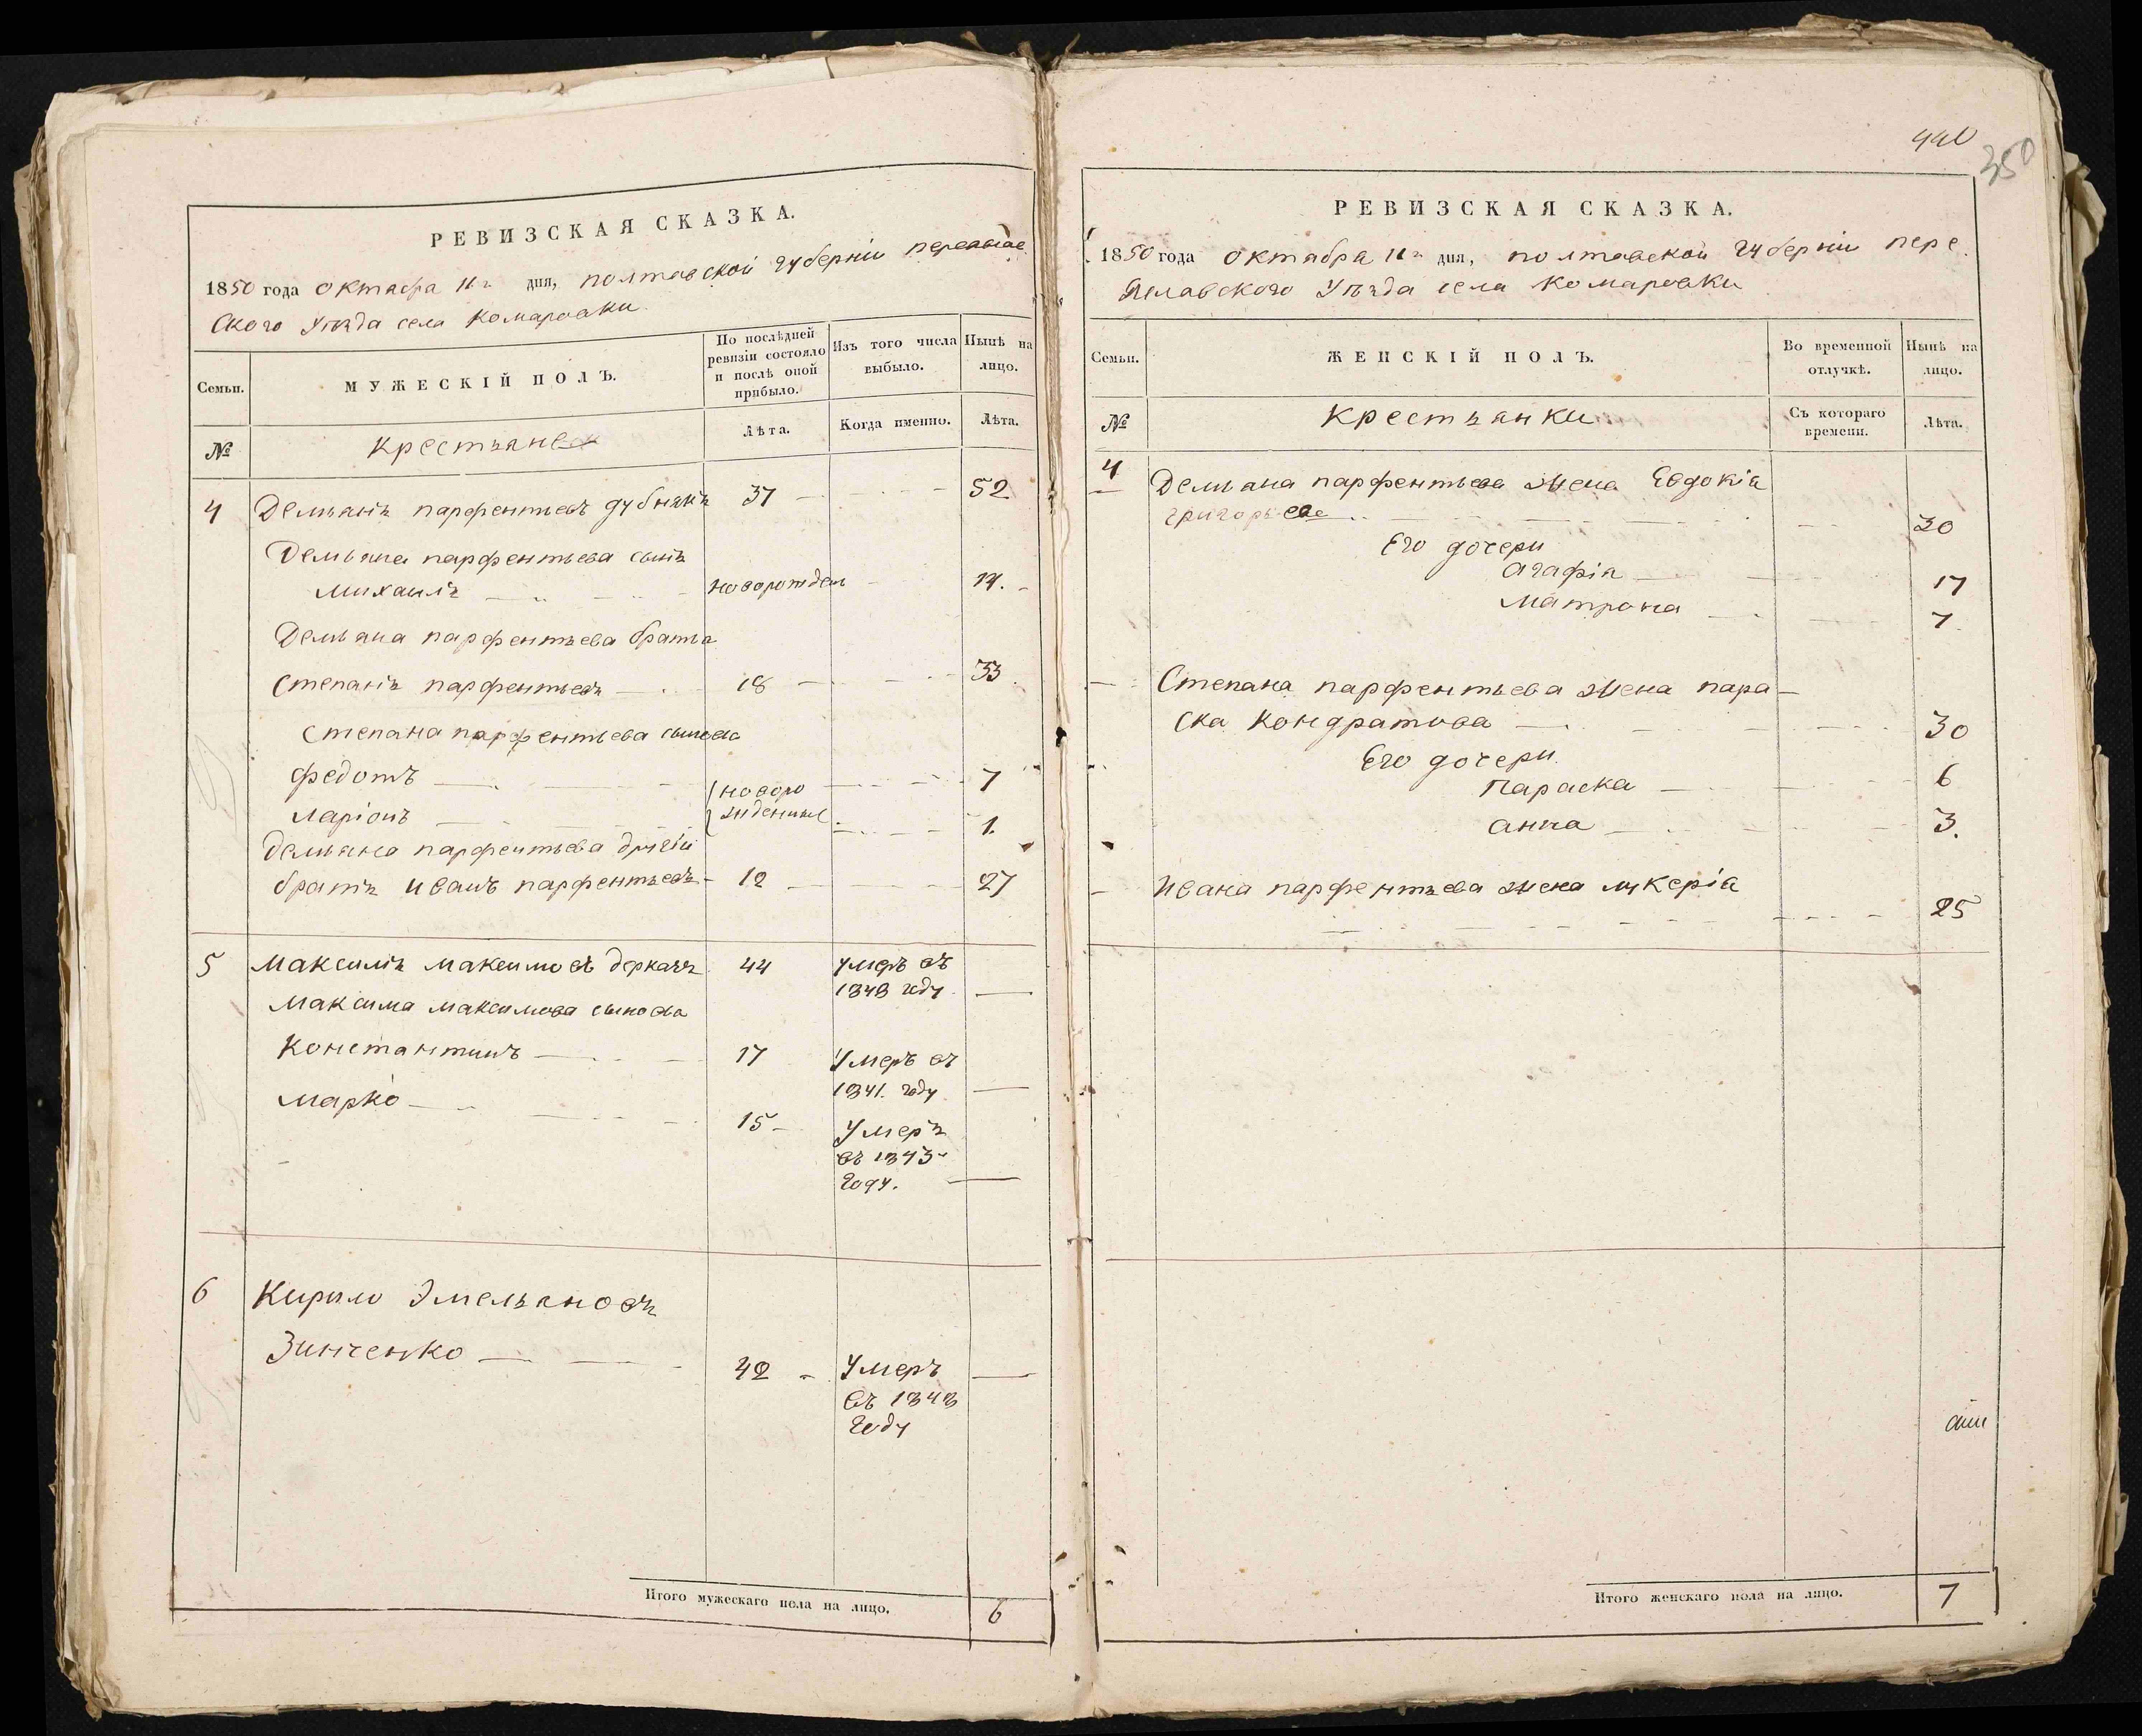 РЕВИЗСКАЯ СКАЗКА.
1850 года октября 11го дня, полтавской губерніи переяслав
ского уѣзда села комаровки
Семьи.
МУЖЕСКІЙ ПОЛЪ.
По послѣдней
ревизіи состояло
и послѣ оной
прибыло.
Изъ того числа
выбыло.
Нынѣ на
лицо.
№
крестьяне
Лѣта.
Когда именно.
Лѣта.
4 Демьянъ парфентьевъ дубнякъ 37 52
Демьяна парфентьева сынъ
михаилъ новорожден 14.
Демьяна парфентьева братья
степанъ парфентьевъ 18 33
степана парфентьева сыновя
федотъ новоро 7
ларіонъ жденные 1.
демьяна парфентьева другій
братъ иванъ парфентьевъ 12 27
5 максимъ максимовъ деркачъ 44 умеръ въ
1848 году
максима максимова сыновя
константинъ 17 умеръ въ
1841. году
марко 15 умеръ
въ 1843
году.
6 кирило Эмельяновъ
Зинченко 42 умеръ
въ 1848
году
Итого мужескаго пола на лицо. 6
440
350
РЕВИЗСКАЯ СКАЗКА.
1850 года октября 11го дня, полтавской губерніи пере
яславского уѣзда села комаровки
Семьи.
ЖЕНСКІЙ ПОЛЪ.
Во временной
отлучкѣ.
Нынѣ на
лицо.
№
крестьянки
Съ котораго
времени.
Лѣта.
4 Демьяна парфентьева жена Евдокія
григорьева 30
Его дочери
агафія 17
матрона 7
Степана парфентьева жена пара
ска кондратова 30
Его дочери
параска 6
анна 3.
ивана парфентьева жена лукерія
25
Итого женскаго пола на лицо. 7